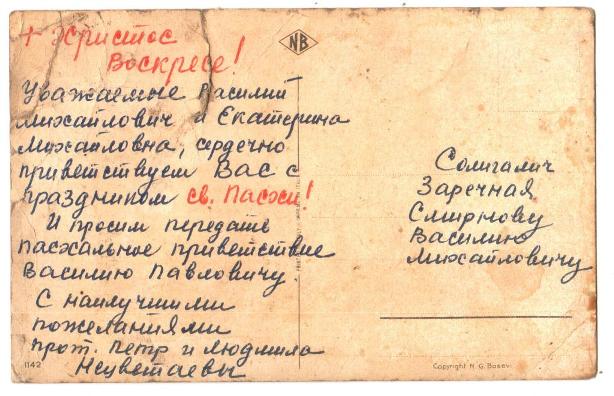 + Христос
Воскресе!
NB
Уважаемые Василий
Михайлович и Екатерина
Михайловна, сердечно
приветствуем Вас с
праздником св. Пасхи!
И просим передать
пасхальное приветствие
Василию Павловичу
С наилучшими
пожеланиями
прот. Петр и Людмила
Нецветаевы
1142
Солигалич
Заречная
Смирнову
Василию
Михайловичу
Copyright N. G. Basevi